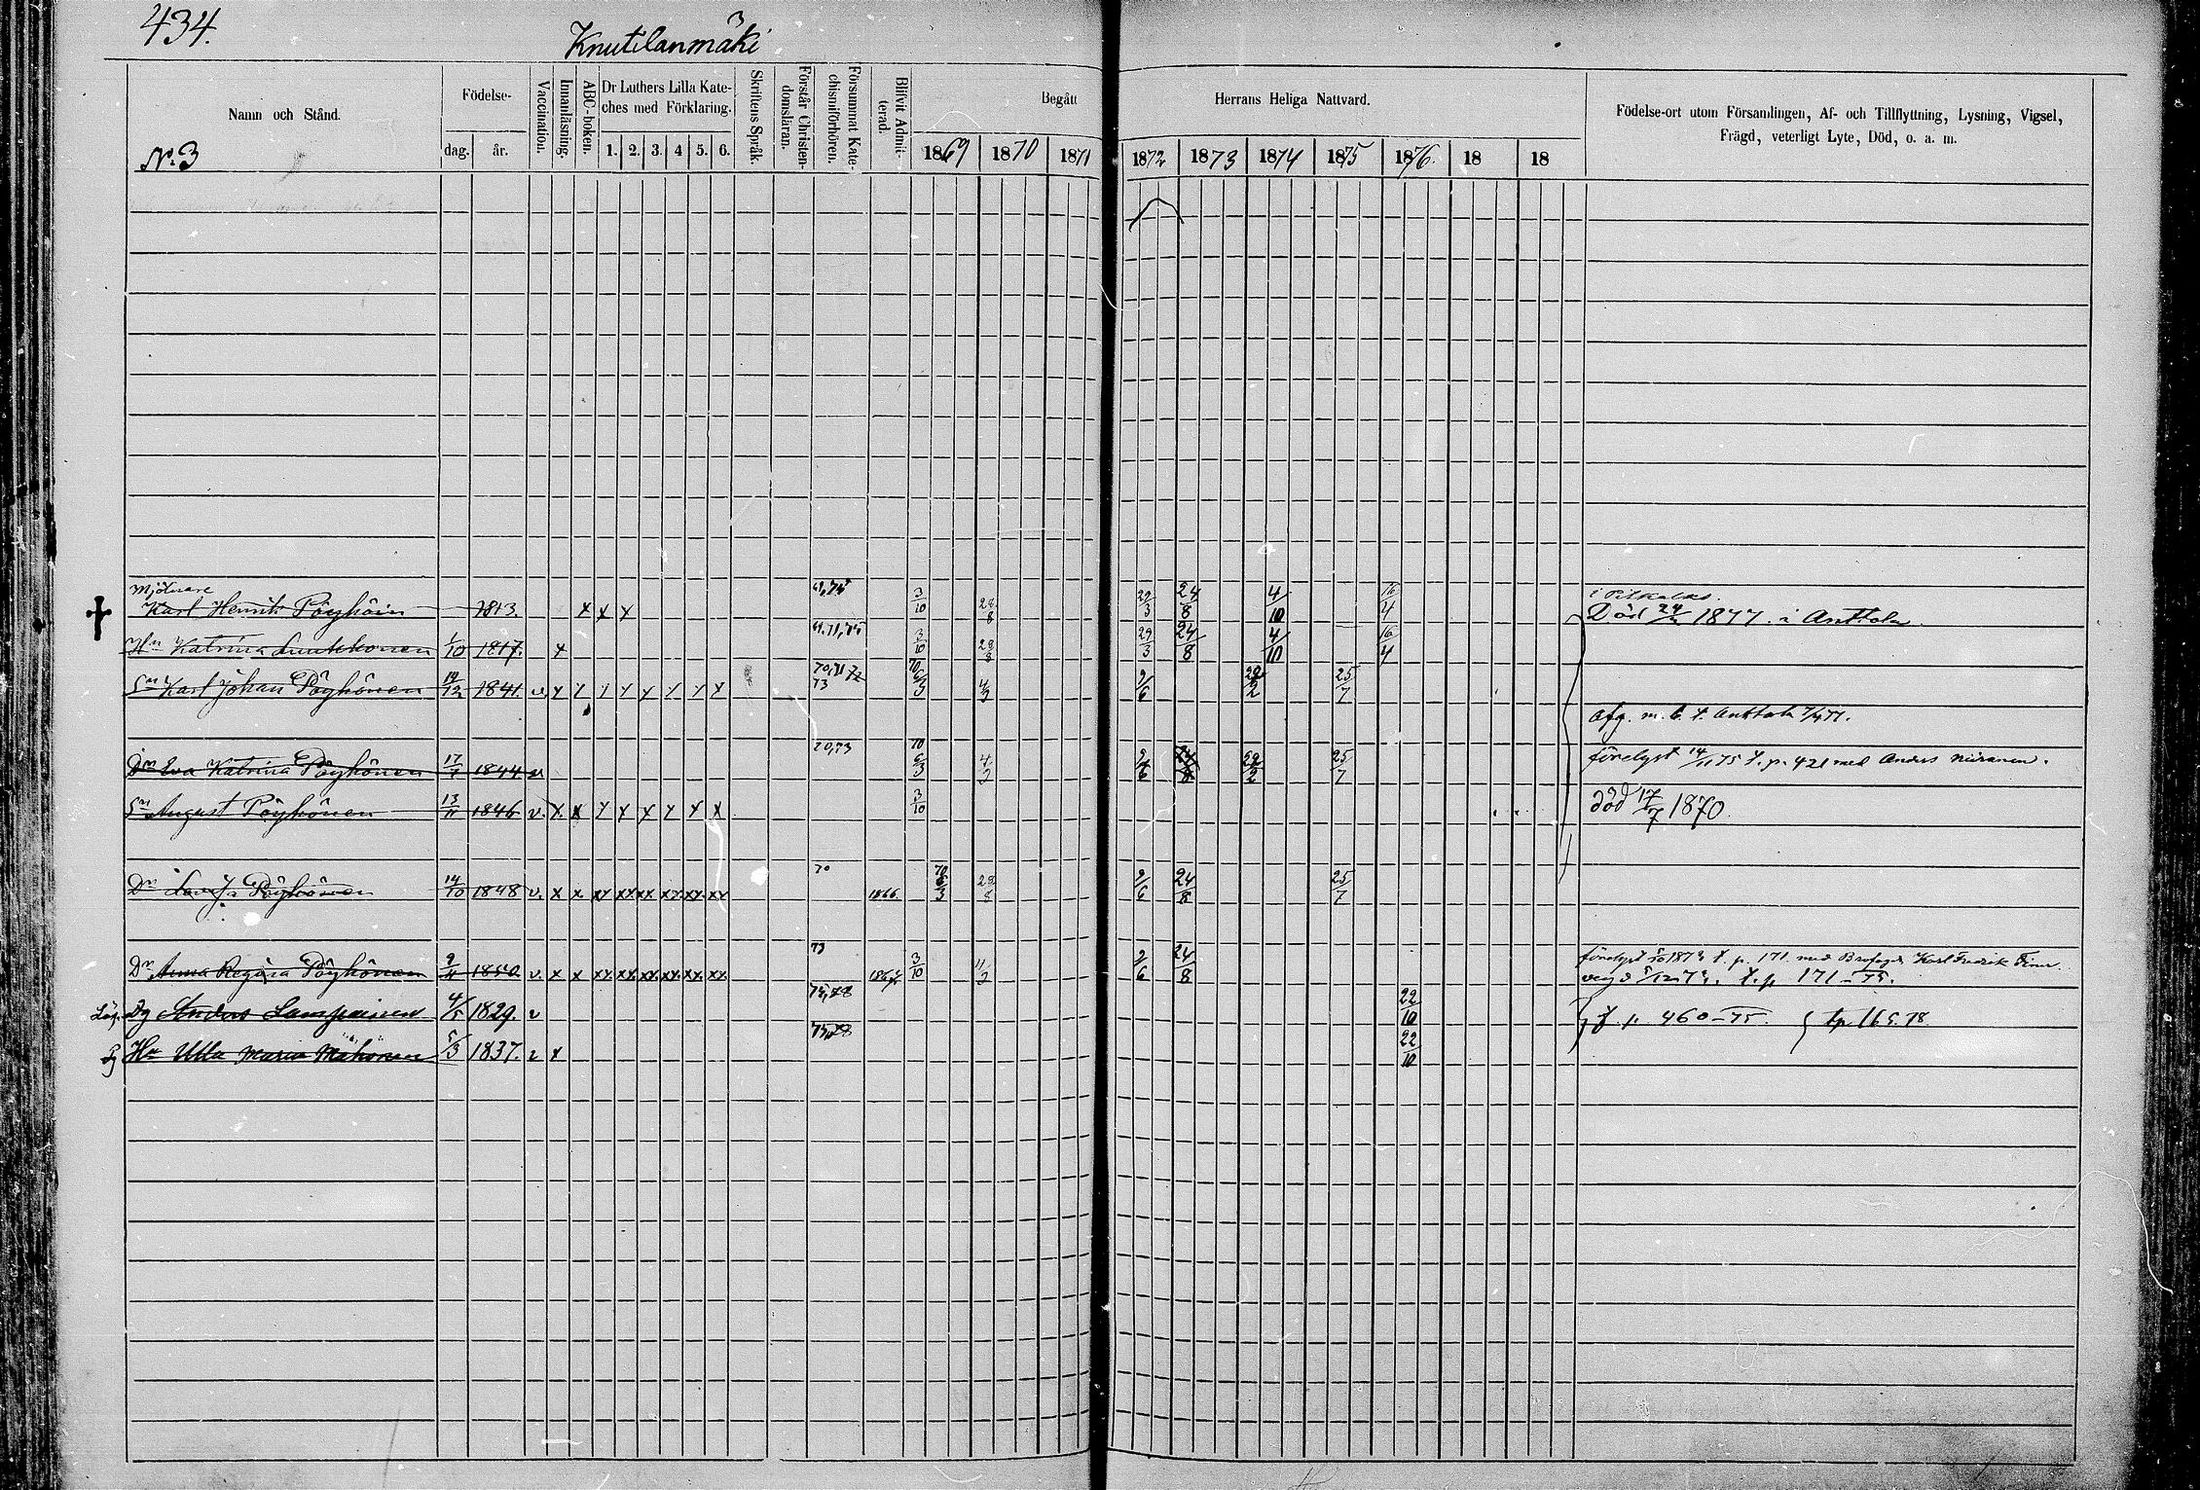 434.
Knutilanmäki
Namn och Stånd.
No 3
Födelse-
dag. år.
Vaccination.
Innanläsning.
ABC-boken.
Dr Luthers Lilla Kate-
ches med Förklaring.
1. 2. 3. 4 5. 6.
Skriftens Språk.
Förstår Christen-
domsläran.
Försummat Kate-
chismiförhören.
Blifvit Admit-
terad.
Begått Herrans Heliga Nattvard.
1869 1870 1871 1872 1873 1874 1875 1876. 18 18
Födelse-ort utom Församlingen, Af- och Tillflyttning, Lysning, Vigsel,
Frägd, veterligt Lyte, Död, o. a. m.
Mjölnare
Karl Henrik Pöyhöin 1813. x x x 3/10 28/8 29/3 24/8 4/10 16/4 Död 1877. i Anttola
Hu Katrina 1/10 1817. x 3/10 28/8 29/3 24/8 4/10 16/4
Sn Karl Johan Pöyhönen 19/12 1841. v. 70,71,72 73 4/2 9/6 22/2 25/7
afg. m. b. t. Anttola
Dr Eva Katrina Pöyhönen 17/7 1844 v 70,73 4/2 9/6 24/8 22/2 25/7 förelyst 14/11 75 t. p. 421 med Anders
Sn August Pöyhönen 13/11 1846 v. x x x x x x x x 3/10 död 17/7 1870.
Dr Pöyhönen 14/10 1848 v. x x xx xx xx xx xx xx 70 1866. 28/8 9/6 24/8 25/7
Dr Anna Regina Pöyhönen 9/11 1850 v. x x xx xx xx xx xx xx 73 1867. 3/10 11/2 9/6 24/8 förelyst t. p. 171. med Karl Fredrik
t. p. 171-75.
Anders Lampainen 4/5 1829. v 75,78 22/10 t p. 460-75. tp. 165. 78
Hu Ulla Maria Mähönen 5/3 1837. v x 75,78 22/10